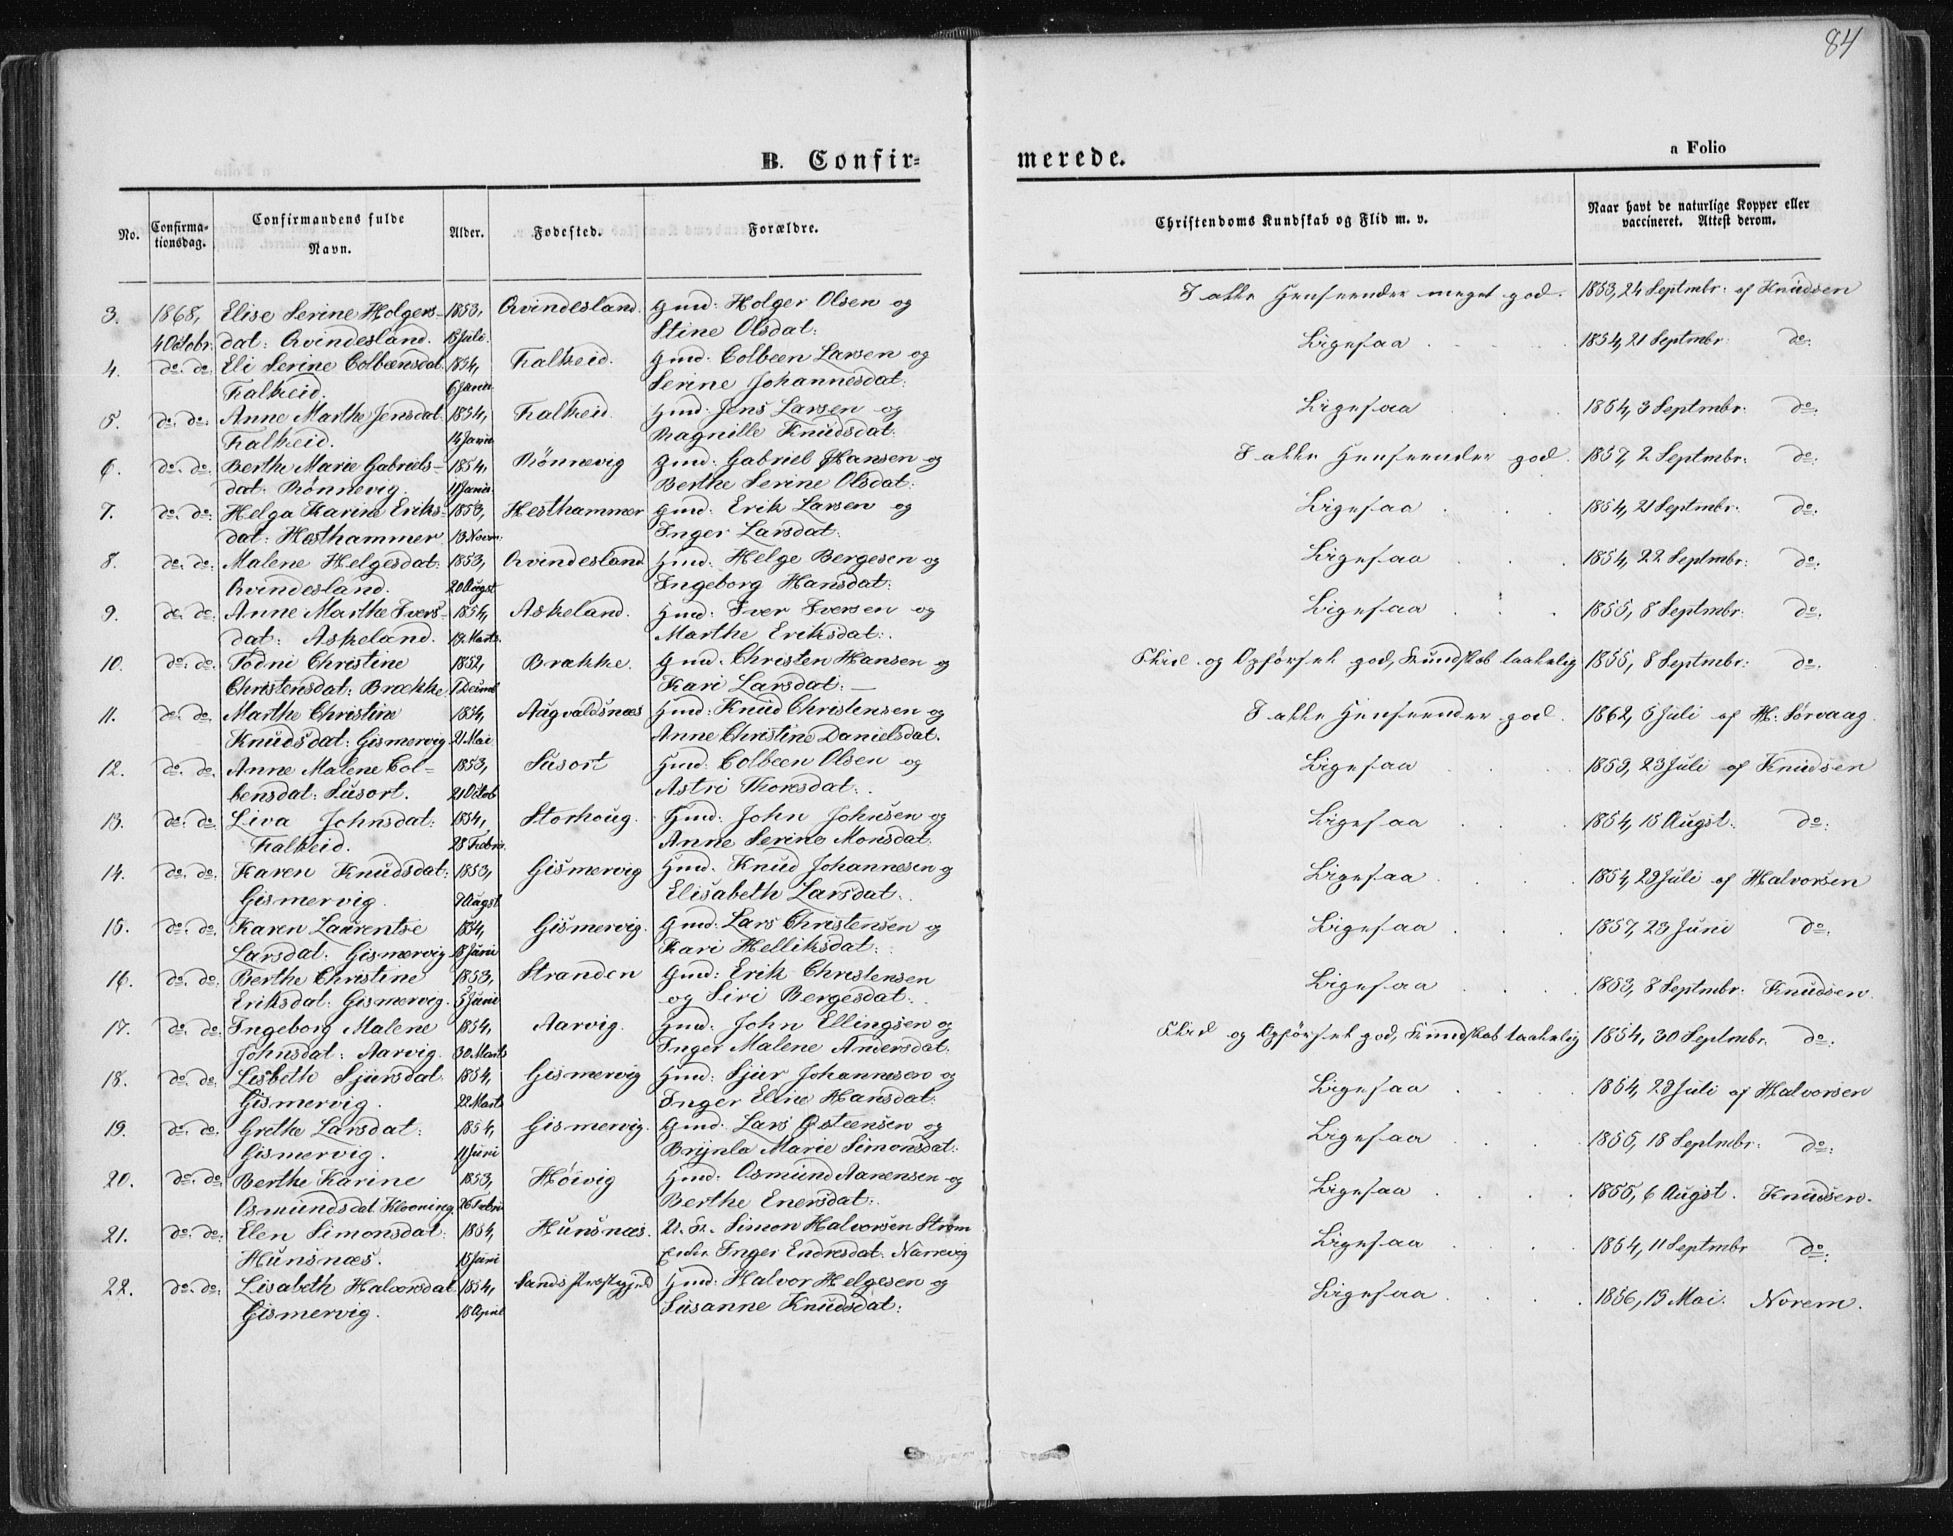 84
B. Confir-
merede.
a Folio
No.
Confirma-
tionsdag.
Confirmandens fulde
Navn.
Alder.
Fødested.
Forældre.
Christendoms Kundskab og Flid m. v.
Naar havt de naturlige Kopper eller
vaccineret. Attest derom.
3. 1868, Elise Serine Holgers- 1853, Qvindesland. Gmd: Holger Olsen og I alle Henseender meget god. 1853, 24 Septmbr: af Knudsen
4 Octobr: dat: Qvindesland. 15 Juli. Stine Olsdat:
4. do. do: Eli Serine Colbensdat: 1854, Falkeid. Gmd: Colbeen Larsen og Ligesaa 1854, 21 Septmbr: do:
Falkeid. 6 Janu. Serine Johannesdat:
5. do. do: Anne Marthe Jensdat: 1854, Falkeid. Gmd: Jens Larsen og Ligesaa 1854, 3 Septmbr: do:
Falkeid. 14 Janu. Ragnille Knudsdat:
6. do. do: Berthe Marie Gabriels- 1854, Rönnevig Gmd: Gabriel Hansen og I alle Henseender god. 1857, 2 Septmbr: do:
dat: Rönnevig. 11 Janu. Berthe Serine Olsdat:
7. do. do: Helga Karine Eriks- 1853, Hesthammer Gmd: Erik Larsen og Ligesaa 1854, 21 Septmbr: do:
dat: Hesthammer 13 Novm: Inger Larsdat:
8. do. do: Malene Helgesdat: 1853, Qvindesland Gmd: Helge Bergesen og Ligesaa 1854, 22 Septmbr: do:
Qvindesland. 20 Augst Ingeborg Hansdat:
9. do. do: Anne Marthe Ivers- 1854, Askeland. Gmd: Iver Iversen og Ligesaa 1855, 8 Septmbr: do.
dat: Askeland. 19 Marts. Marthe Eriksdat:
10. do. do. Todni Christine 1852, Brække. Gmd: Christen Hansen og Flid og Opførsel god, Kundskab taalelig 1855, 8 Septmbr: do.
Christensdat: Brække. 1 Decmb Kari Larsdat:
11. do. do. Marthe Christine 1854, Augvaldsnæs Gmd: Knud Christensen og I alle Henseender god. 1862, 5 Juli af H: Sørvaag.
Knudsdat: Gismervig 21 Mai Anne Christine Danielsdat.
12. do. do. Anne Malene Col- 1853, Susort Gmd: Colbeen Olsen og Ligesaa 1853, 23 Juli af Knudsen
bensdat: Susort. 21 Octob Astri Thoresdat:
13. do. do. Liva Johnsdat: 1854, Storhoug. Gmd: John Johnsen og Ligesaa 1854, 15 Augst: do:
Falkeid. 28 Febru. Anne Serine Monsdat:
14. do. do. Karen Knudsdat: 1853, Gismervig Gmd: Knud Johannesen og Ligesaa 1854, 29 Juli af Halvorsen
Gismervig. 7 Augst Elisabeth Larsdat:
15. do. do. Karen Laurentse 1854, Gismervig. Gmd: Lars Christensen og Ligesaa 1857, 23 Juni do:
Larsdat: Gismervig 18 Juni Kari Helliksdat:
16. do. do: Berthe Christine 1853, Stranden Gmd: Erik Christensen Ligesaa 1853, 8 Septmbr: Knudsen.
Eriksdat: Gismervig. 5 Juni og Siri Bergesdat:
17. do. do: Ingeborg Malene 1854, Aarvig. Gmd: John Ellingsen og Flid og Opførsel god, Kundskab taalelig 1854, 30 Septmbr. do:
Johnsdat: Aarvig. 30 Marts Inger Malene Andersdat:
18. do. do. Lisbeth Sjursdat: 1854, Gismervig Gmd: Sjur Johannesen og Ligesaa 1854, 29 Juli af Halvorsen
Gismervig. 22 Marts Inger Eline Hansdat:
19. do. do. Grethe Larsdat: 1854, Gismervig. Gmd: Lars Osteensen og Ligesaa 1855, 18 Septmbr: do:
Gismervig. 11 Juni Brynla Marie Simonsdat:
20. do. do: Berthe Karine 1853, Høivig Gmd: Osmund Aanensen og Ligesaa 1855, 6 Augst. Knudsen.
Osmundsdat 26 Febru Berthe Enersdat:
21. do. do: Elen Simonsdat: 1854, Hunsnæs. Simon Halvorsen Strøm Ligesaa 1854, 11 Septmbr do:
Hunsnæs. 15 Juni Inger Endresdat:
22. do. do: Lisabeth Halvorsdat: 1854, Sands Præstegjeld Gmd: Halvor Helgesen og Ligesaa 1856, 19 Mai: Norem.
Gismervig. 18 April Susanne Knudsdat: